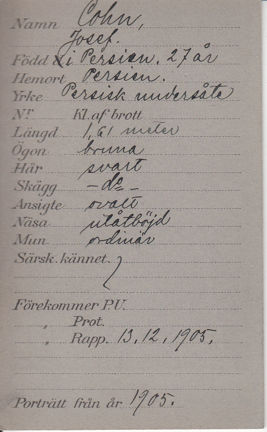 Namn Cohn,
Josef.
Född i Persien. 27 år
Hemort Persien.
Yrke Persisk undersåte
Nr Kl. af brott
Längd 1,61 meter
Ögon bruna
Hår svart
Skägg - do -
Ansigte ovalt
Näsa utåtböjd
Mun ordinär
Särsk. kännet.
Förekommer P.U.
" Prot.
" Rapp. 13.12.1905.
Porträtt från år 1905.